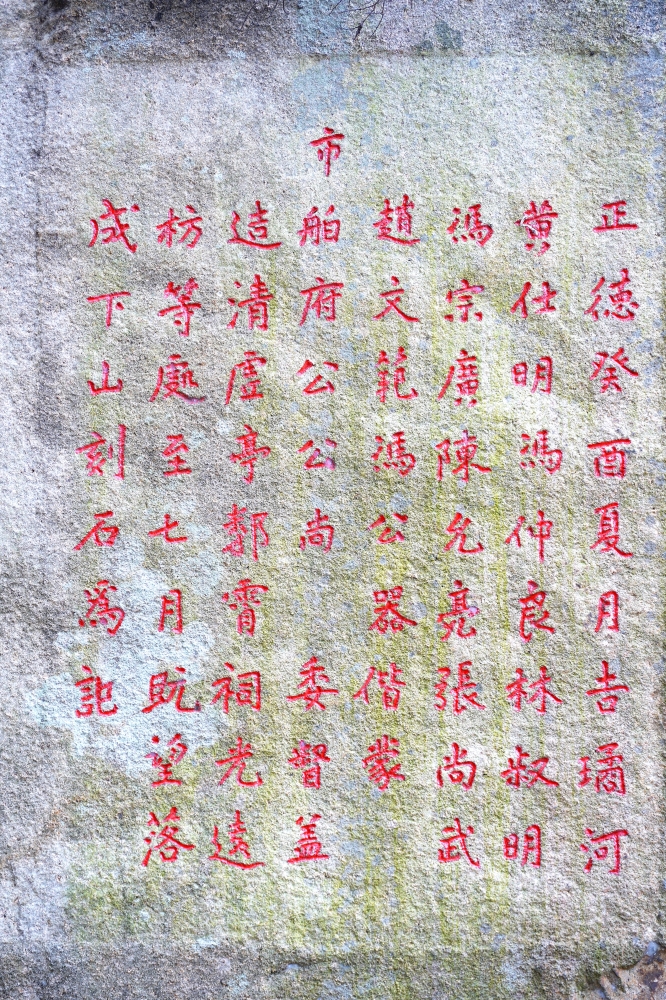 正德癸酉夏月吉璚河
黄仕明馮仲良林叔明
馮宗廣陳允亮張尚武
趙文範馮公器偕蒙
市舶府公公尚 委督盖
造清虛亭鄴霄祠光遠
枋等處至七月旣望落
成下山刻石爲記